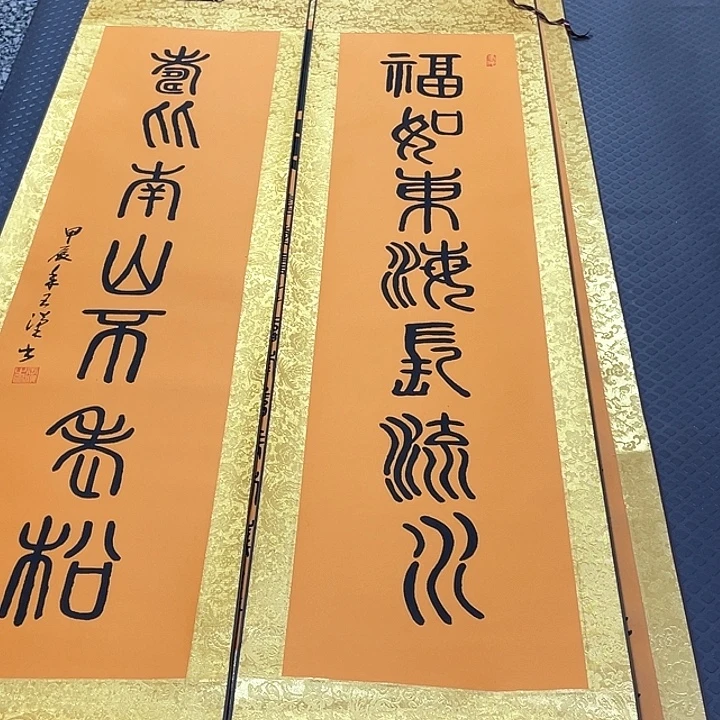 福如東海長流水
壽比南山不老松
甲辰年王漢書